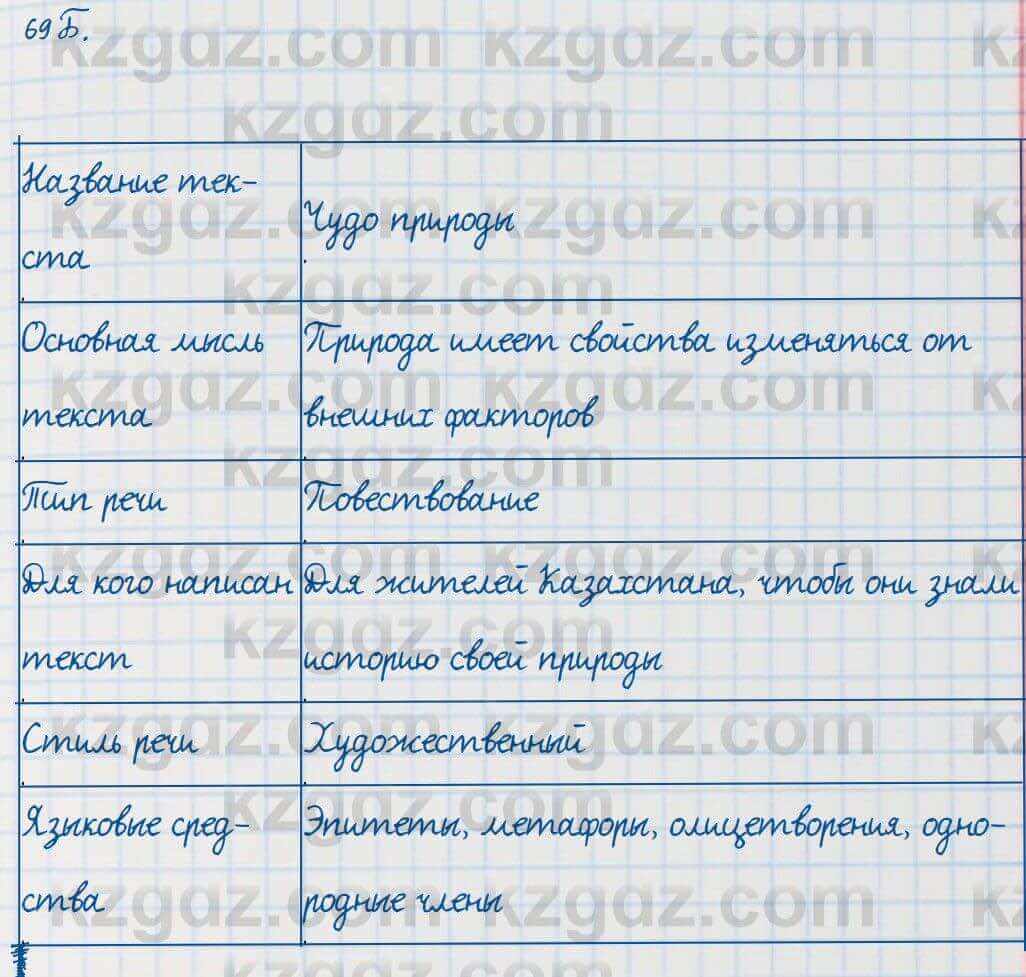 69 Б.
Название тек-
ста
Чудо природы
Основная мысль
текста
Природа имеет свойства изменяться от
внешних факторов
Тип речи
Повествование
Для кого написан
текст
Для жителей Казахстана, чтобы они знали
историю своей природы
Стиль речи
Художественный
Языковые сред-
ства
Эпитеты, метафоры, олицетворения, одно-
родные члены
kzgdz.com